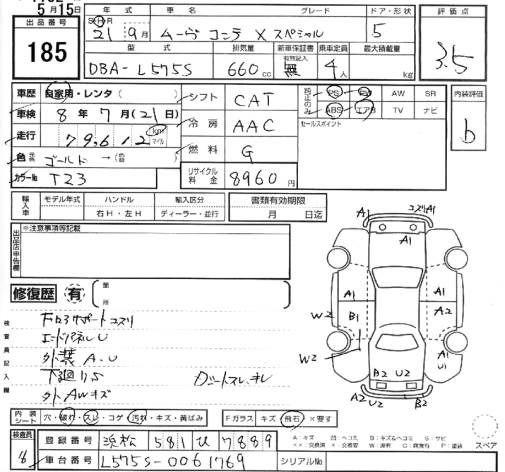 5月15日
出品番号 185
年式 車名 グレード ドア・形状 評価点
S・H・R 21年9月 ムーヴ コンテ X スペシャル 5 3.5
型式 排気量 新車保証書 乗車定員 最大積載量
有効記入
DBA- L575S 660cc 無 4人 kg
車歴 自家用・レンタ( ) シフト CAT PS PW AW SR 内装評価
車検 8年7月(21日) 冷房 AAC ABS エアB TV ナビ b
走行 79,612 km マイル 燃料 G セールスポイント
色 ゴールド → (色替)
カラーNo T23 リサイクル料金 8960円
輸入車 モデル年式 ハンドル 輸入区分 書類有効期限
右H・左H ディーラー・並行 月 日迄
出品店申告欄 ※注意事項等記載
コスリA1
A1
修復歴 有 箇所
検査員記入欄
コスリ
外装 A.U
外AWキズ
A1 A1
W2 B1 A2
W2
A1
U1
B2 U2
A2 U2 B2
内装シート 穴・破れ・スレ・コゲ・汚れ・キズ・黄ばみ Fガラス キズ・飛石・×要す
検査員 登録番号 浜松 581 ひ 7889
A:キズ U:ヘコミ B:キズ&ヘコミ S:サビ
スペア
車台番号 L575S-0061769 シリアルNo